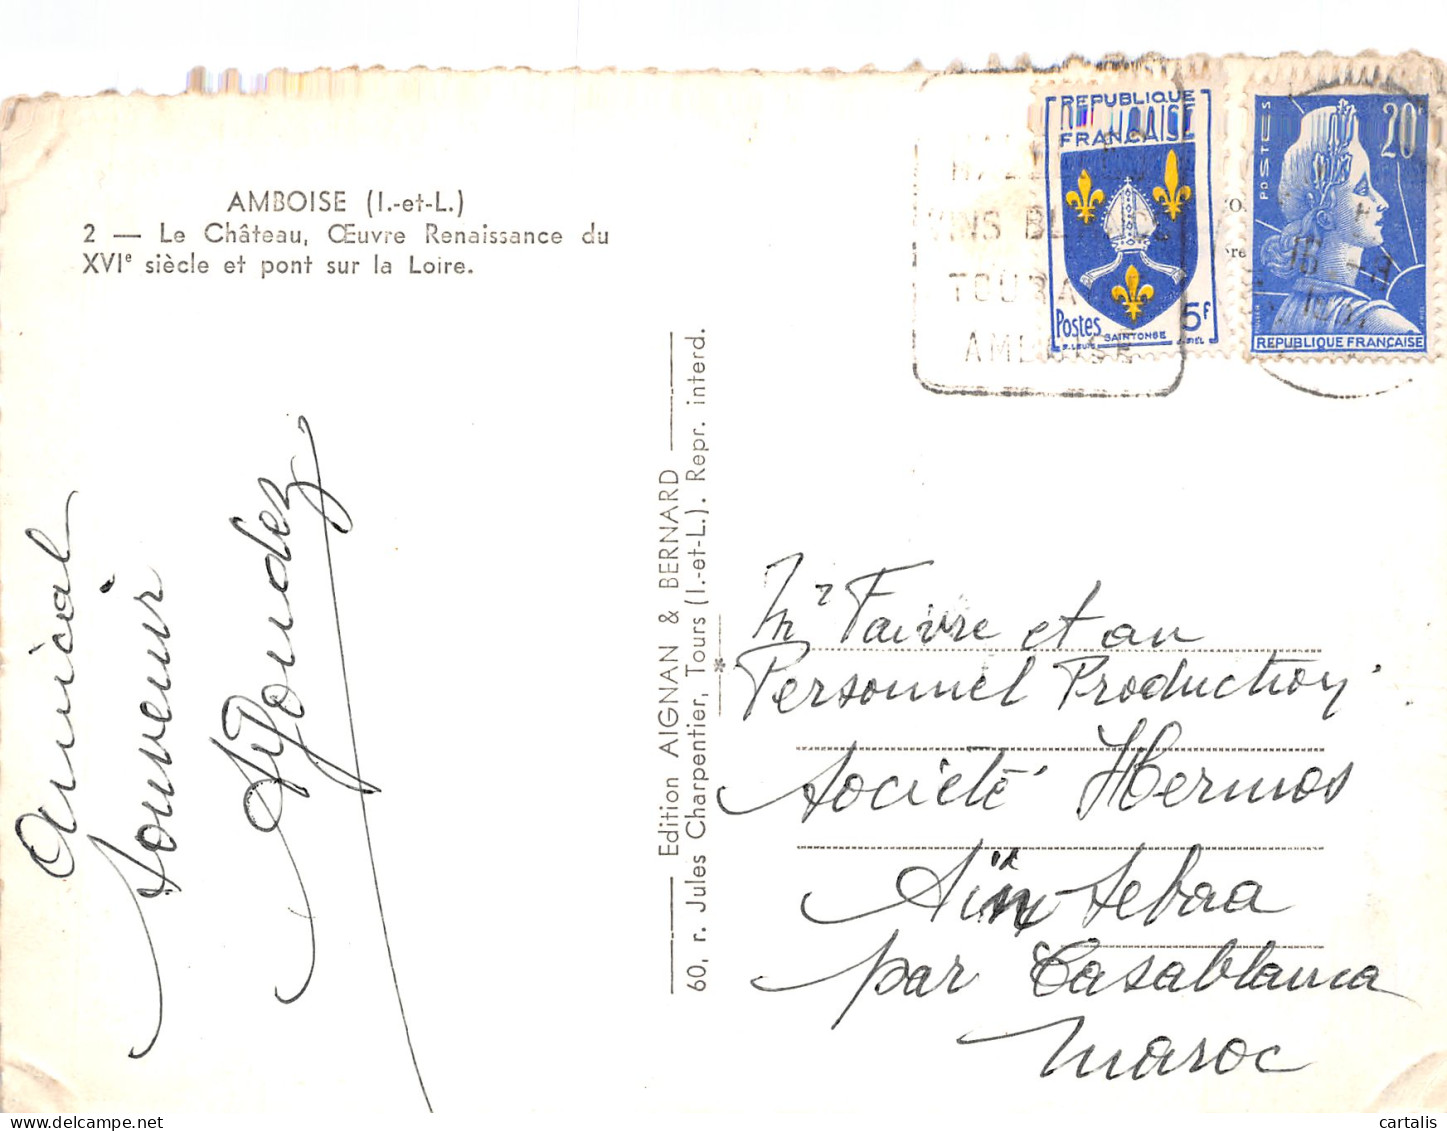 AMBOISE (I.-et-L.)
2 — Le Château, Œuvre Renaissance du
XVIᵉ siècle et pont sur la Loire.
Amical
Souvenir
Edition AIGNAN & BERNARD
60, r. Jules Charpentier, Tours (I.-et-L.). Repr. interd.
VINS BLANCS
AMBOISE
REPUBLIQUE
FRANCAISE
Postes 5F
SAINTONGE
POSTES
20F
REPUBLIQUE FRANÇAISE
Mr Faivre et au
Personnel Production
Société Hermos
Aïn Sebaa
par Casablanca
Maroc
cartalis